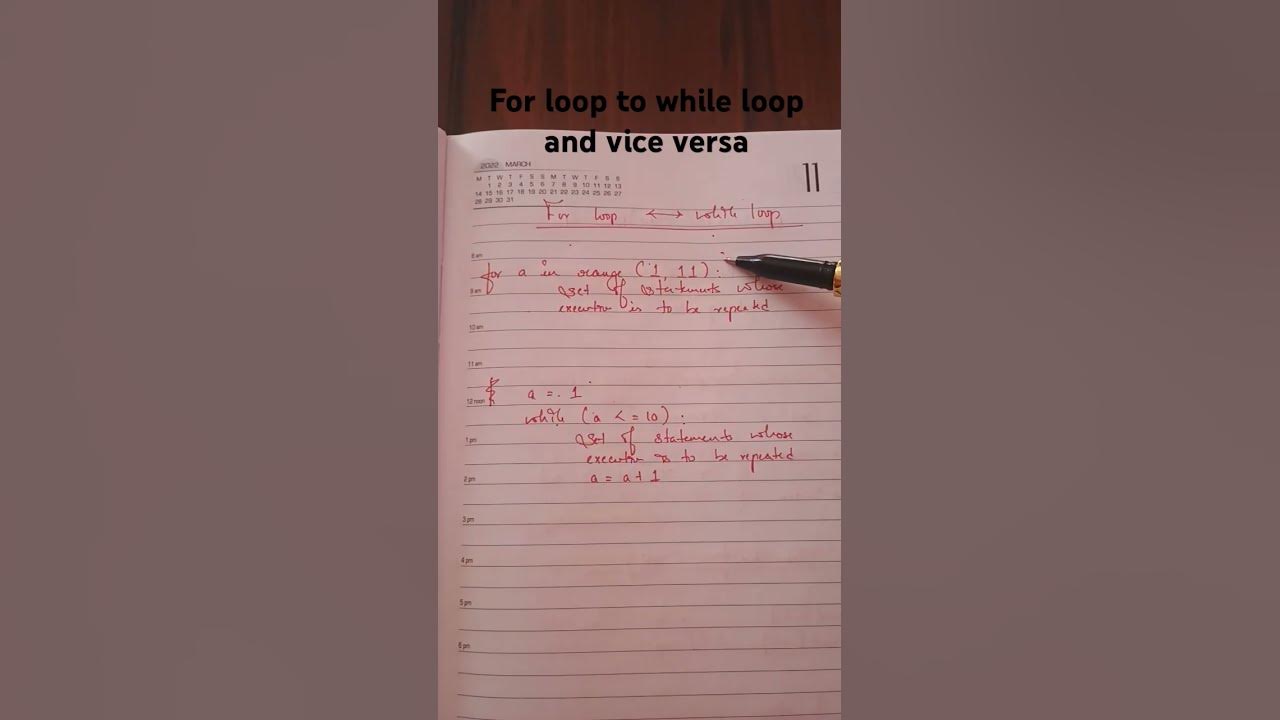 For loop to while loop
and vice versa
2022 MARCH
11
M T W T F S S M T W T F S S
1 2 3 4 5 6 7 8 9 10 11 12 13
14 15 16 17 18 19 20 21 22 23 24 25 26 27
28 29 30 31
For loop ⟷ while loop
8 am
for a in range (1, 11) :
9 am
set of statements whose
execution is to be repeated
10 am
11 am
a = 1
12 noon
while (a < = 10) :
1 pm
set of statements whose
execution is to be repeated
2 pm
a = a + 1
3 pm
4 pm
5 pm
6 pm